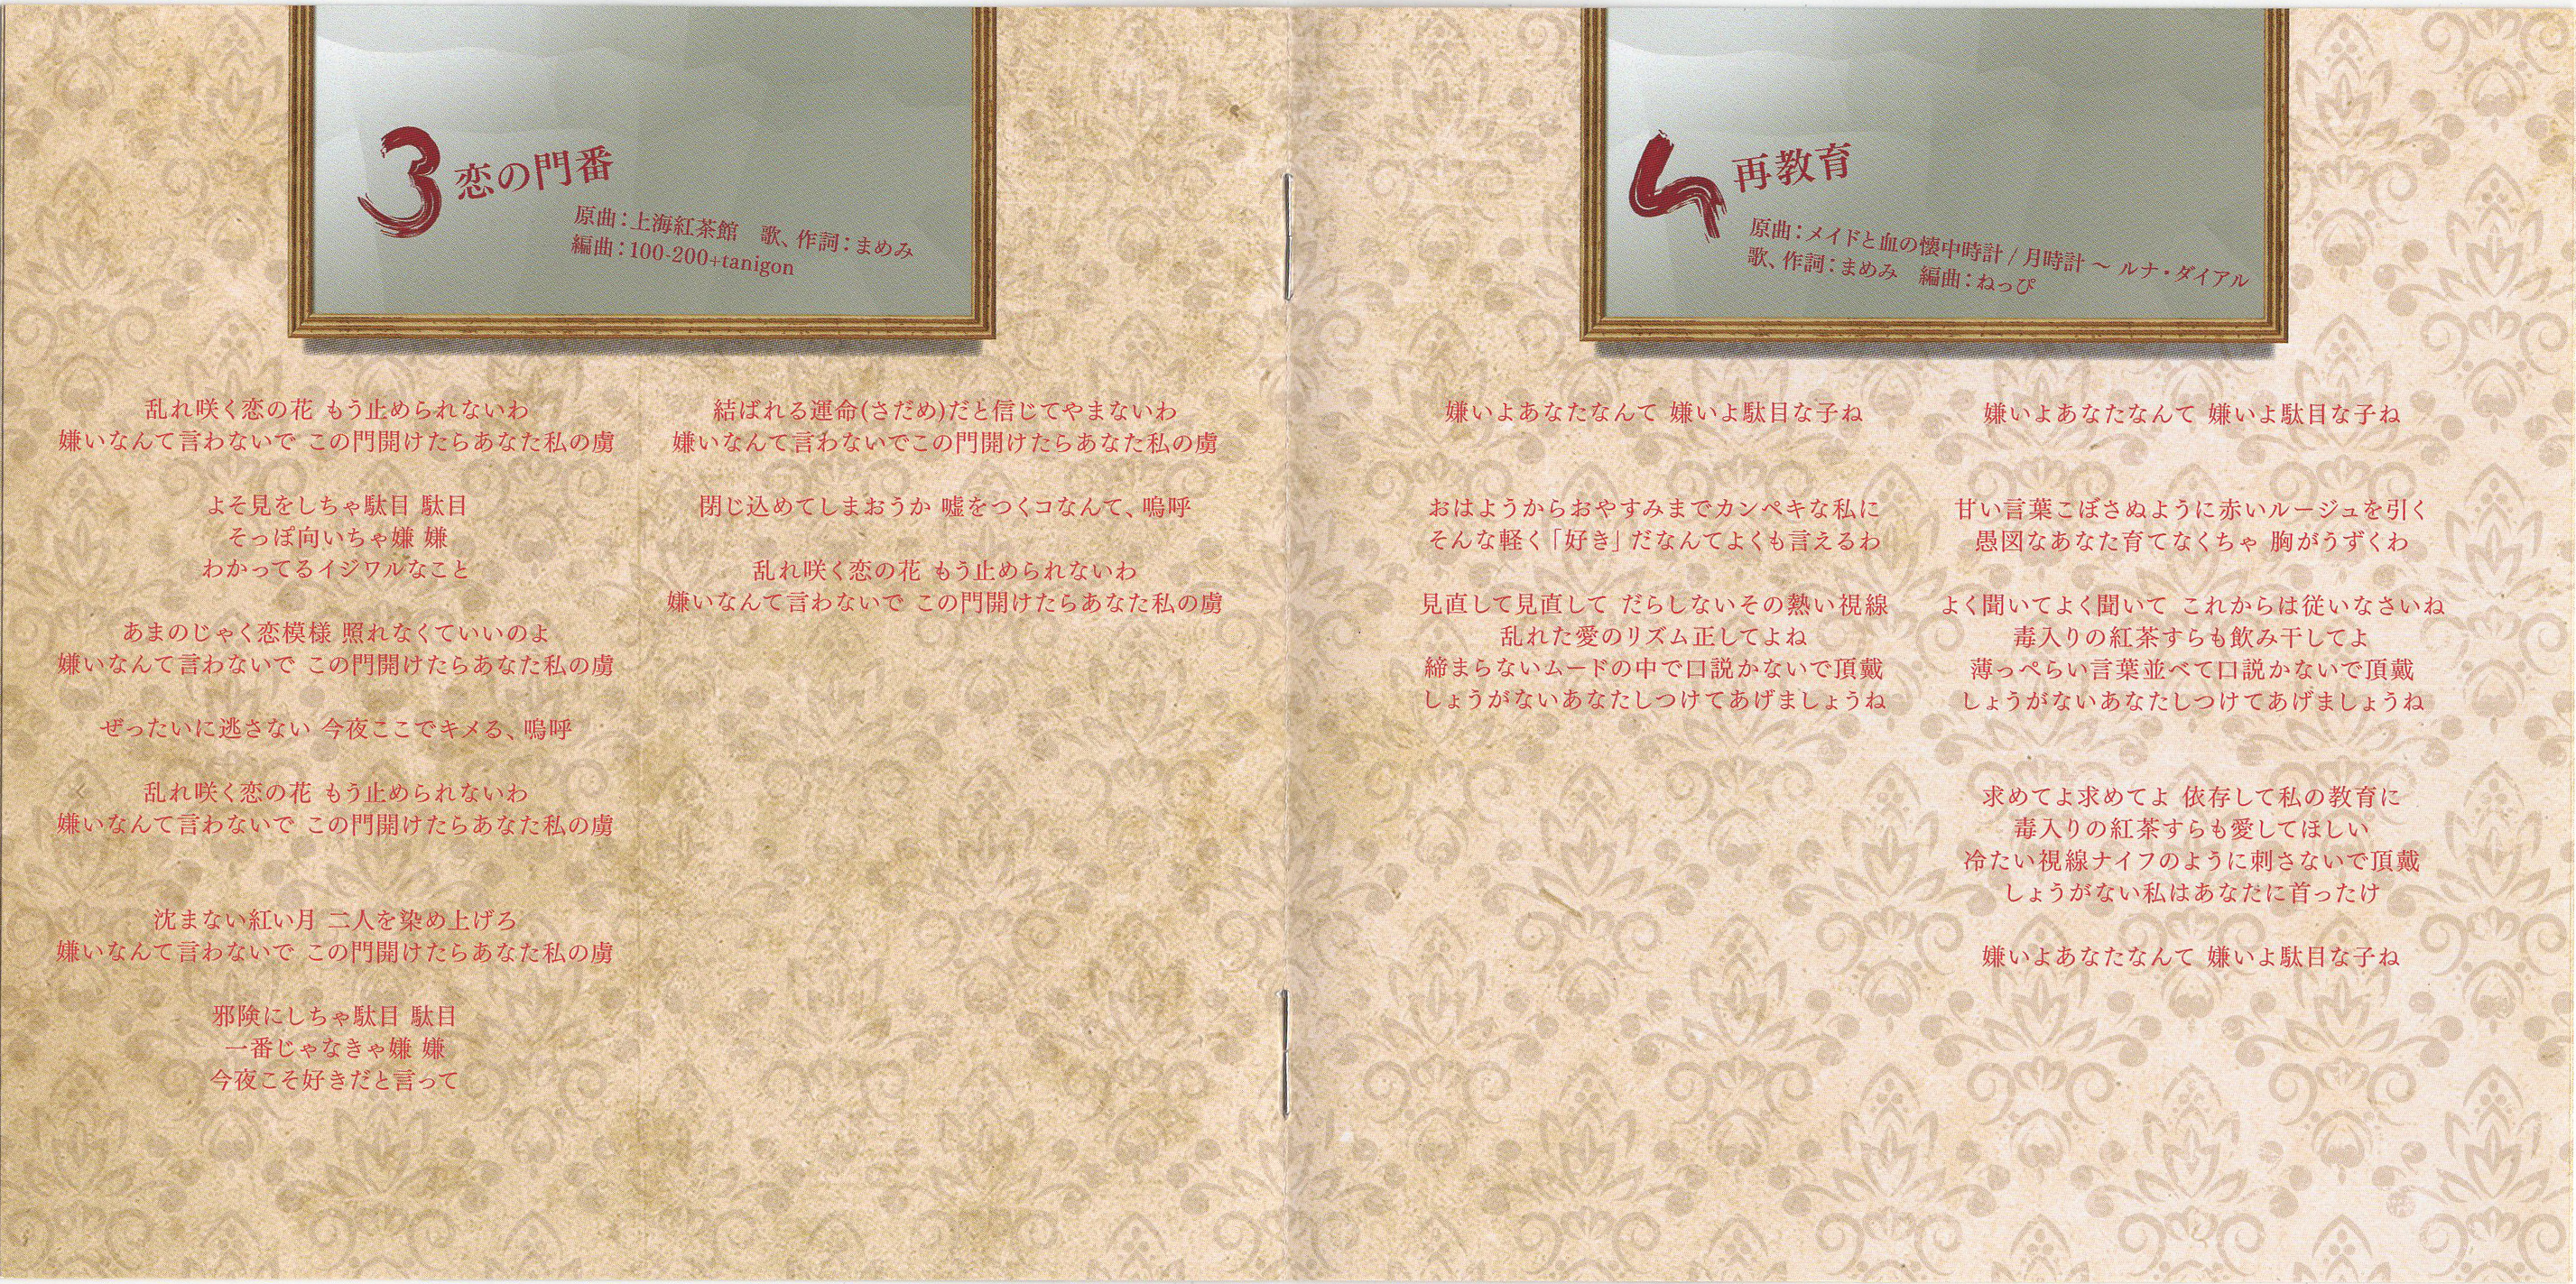 3 恋の門番
原曲：上海紅茶館　歌、作詞：まめみ
編曲：100-200+tanigon
乱れ咲く恋の花 もう止められないわ
嫌いなんて言わないで この門開けたらあなた私の虜
よそ見をしちゃ駄目 駄目
そっぽ向いちゃ嫌 嫌
わかってるイジワルなこと
あまのじゃく恋模様 照れなくていいのよ
嫌いなんて言わないで この門開けたらあなた私の虜
ぜったいに逃さない 今夜ここでキメる、嗚呼
乱れ咲く恋の花 もう止められないわ
嫌いなんて言わないで この門開けたらあなた私の虜
沈まない紅い月 二人を染め上げろ
嫌いなんて言わないで この門開けたらあなた私の虜
邪険にしちゃ駄目 駄目
一番じゃなきゃ嫌 嫌
今夜こそ好きだと言って
結ばれる運命(さだめ)だと信じてやまないわ
嫌いなんて言わないでこの門開けたらあなた私の虜
閉じ込めてしまおうか 嘘をつくコなんて、嗚呼
乱れ咲く恋の花 もう止められないわ
嫌いなんて言わないで この門開けたらあなた私の虜
4 再教育
原曲：メイドと血の懐中時計 / 月時計 ～ ルナ・ダイアル
歌、作詞：まめみ　編曲：ねっぴ
嫌いよあなたなんて 嫌いよ駄目な子ね
おはようからおやすみまでカンペキな私に
そんな軽く「好き」だなんてよくも言えるわ
見直して見直して だらしないその熱い視線
乱れた愛のリズム正してよね
締まらないムードの中で口説かないで頂戴
しょうがないあなたしつけてあげましょうね
嫌いよあなたなんて 嫌いよ駄目な子ね
甘い言葉こぼさぬように赤いルージュを引く
愚図なあなた育てなくちゃ 胸がうずくわ
よく聞いてよく聞いて これからは従いなさいね
毒入りの紅茶すらも飲み干してよ
薄っぺらい言葉並べて口説かないで頂戴
しょうがないあなたしつけてあげましょうね
求めてよ求めてよ 依存して私の教育に
毒入りの紅茶すらも愛してほしい
冷たい視線ナイフのように刺さないで頂戴
しょうがない私はあなたに首ったけ
嫌いよあなたなんて 嫌いよ駄目な子ね